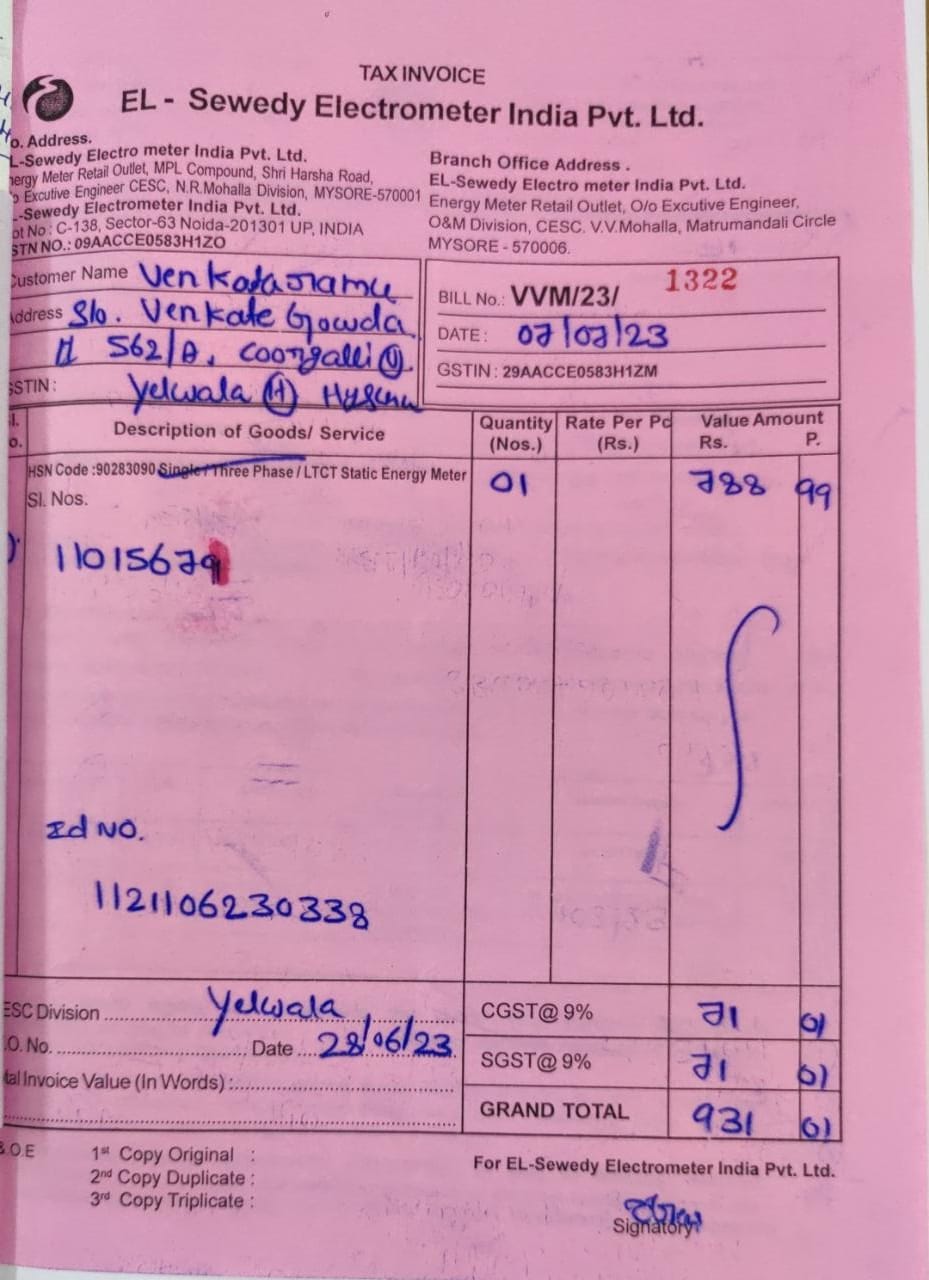 TAX INVOICE
EL - Sewedy Electrometer India Pvt. Ltd.
o. Address.
L-Sewedy Electro meter India Pvt. Ltd.
nergy Meter Retail Outlet, MPL Compound, Shri Harsha Road,
o Excutive Engineer CESC, N.R.Mohalla Division, MYSORE-570001
-Sewedy Electrometer India Pvt. Ltd.
ot No : C-138, Sector-63 Noida-201301 UP, INDIA
STN NO.: 09AACCE0583H1ZO
Branch Office Address .
EL-Sewedy Electro meter India Pvt. Ltd.
Energy Meter Retail Outlet, O/o Excutive Engineer,
O&M Division, CESC. V.V.Mohalla, Matrumandali Circle
MYSORE - 570006.
Customer Name Venkataramu
Address S/o. Venkate Gowda
# 562/A, Coorgalli (V)
GSTIN : Yelwala (H) Mysuru
BILL No.: VVM/23/ 1322
DATE : 07/07/23
GSTIN : 29AACCE0583H1ZM
l. o. Description of Goods/ Service Quantity (Nos.) Rate Per Pc (Rs.) Value Amount Rs. P.
HSN Code :90283090 Single / Three Phase / LTCT Static Energy Meter 01 788 99
Sl. Nos.
11015679
Id NO.
1121106230338
ESC Division Yelwala
.O. No. Date 28/06/23
tal Invoice Value (In Words) :
CGST@ 9% 71 01
SGST@ 9% 71 01
GRAND TOTAL 931 01
&.O.E
1st Copy Original :
2nd Copy Duplicate :
3rd Copy Triplicate :
For EL-Sewedy Electrometer India Pvt. Ltd.
Signatory